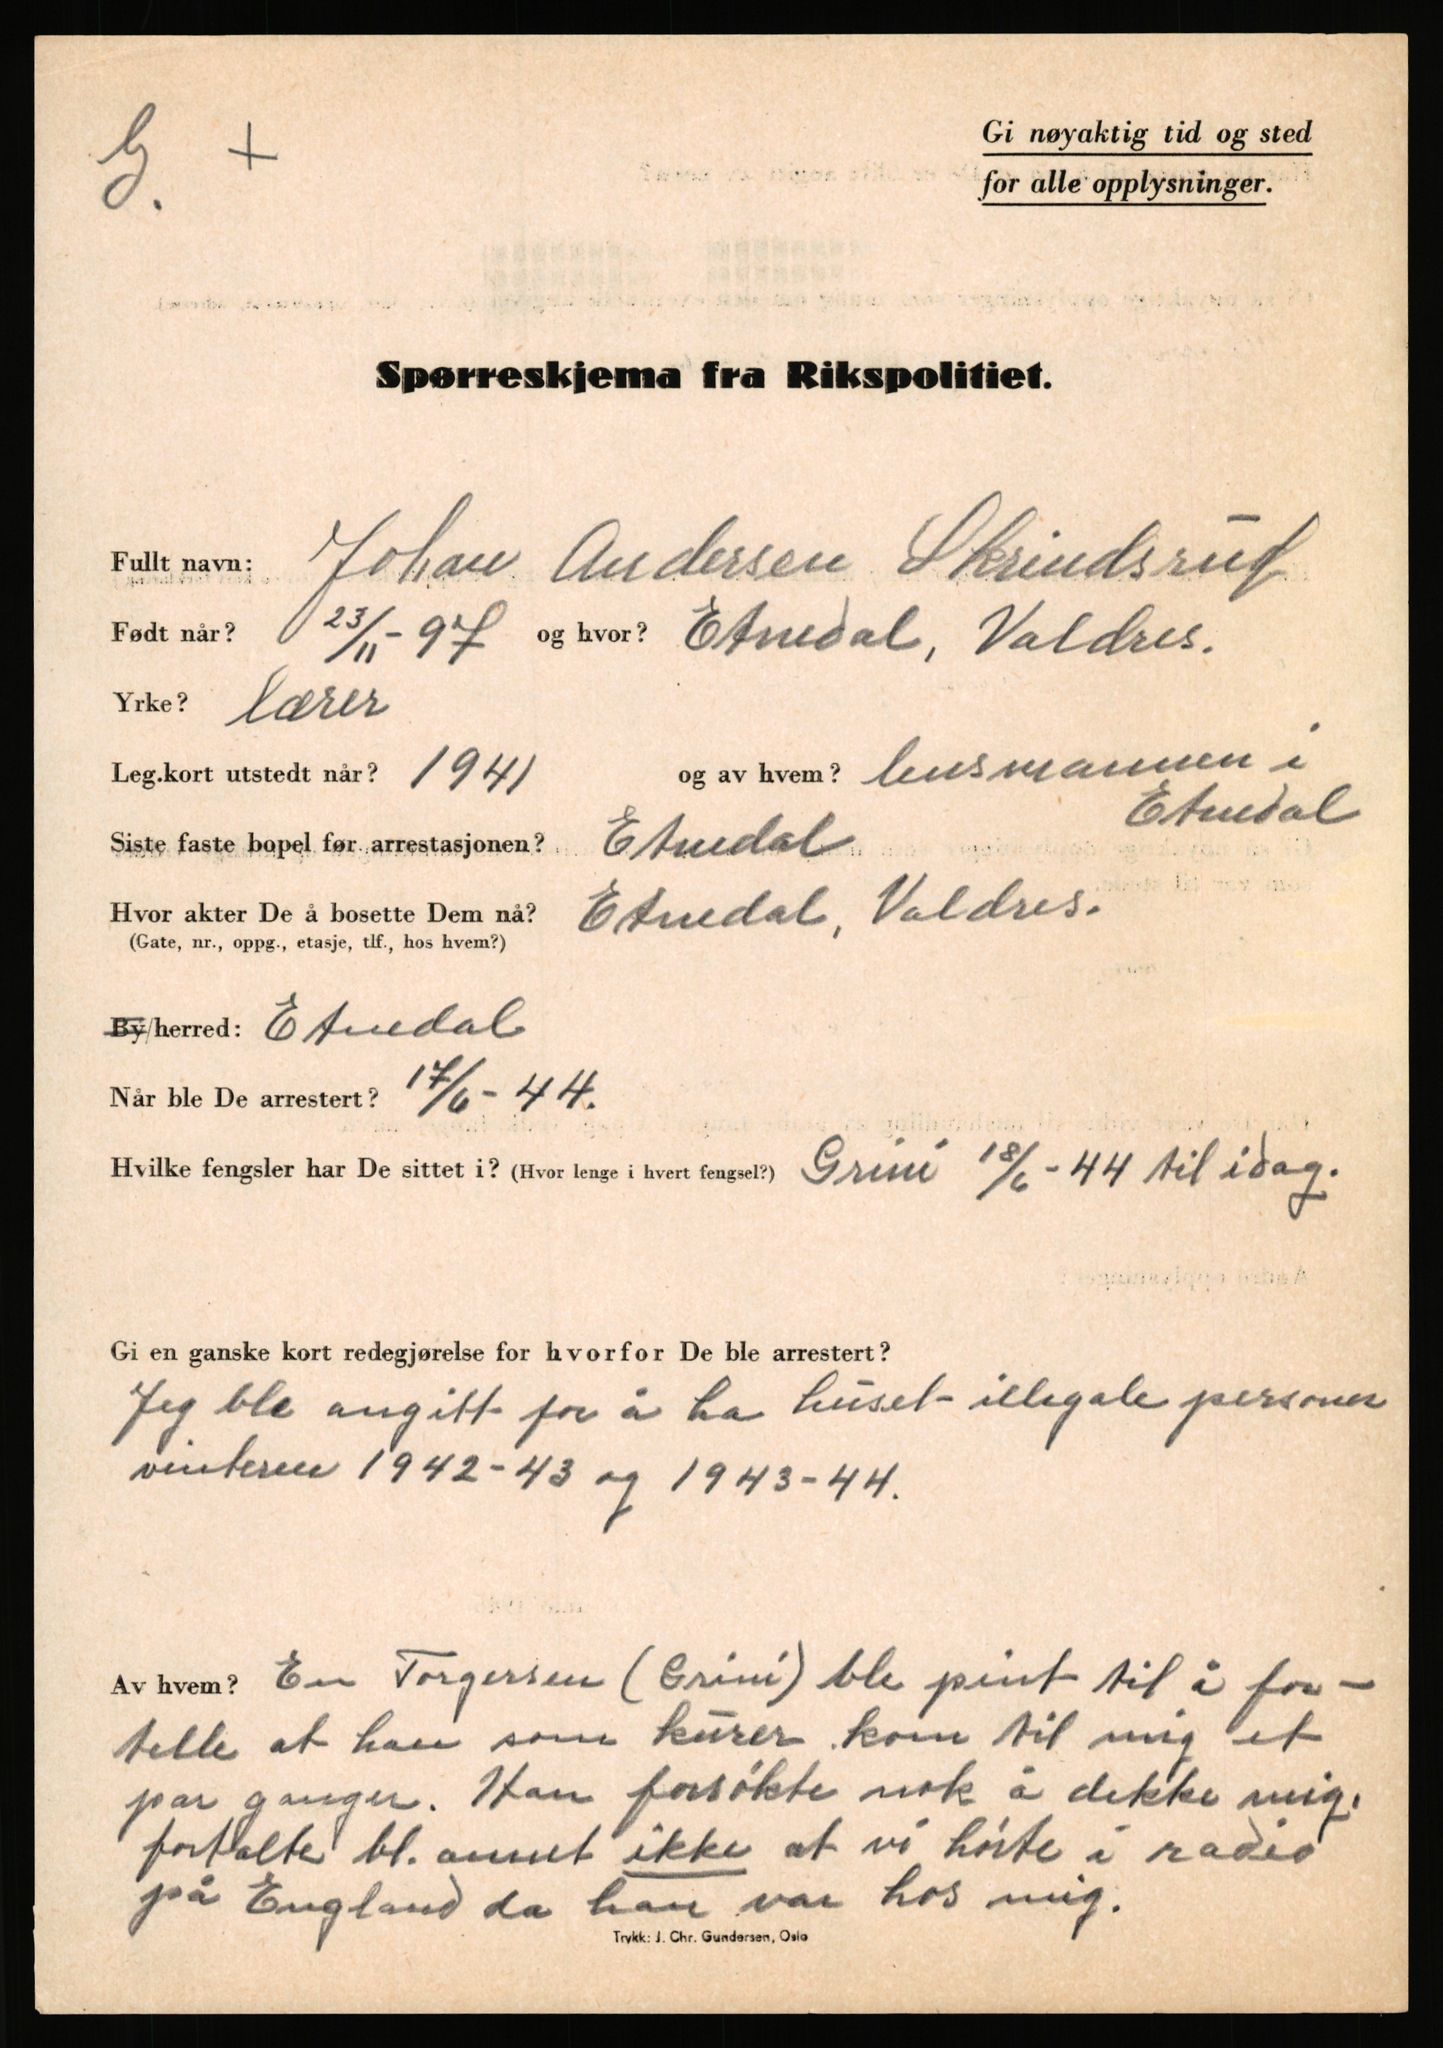 G. +
Gi nøyaktig tid og sted
for alle opplysninger.
Spørreskjema fra Rikspolitiet.
Fullt navn: Johan Andersen Skrindsrud
Født når? 23/11-97 og hvor? Etnedal, Valdres.
Yrke? lærer
Leg.kort utstedt når? 1941 og av hvem? lensmannen i
Etnedal
Siste faste bopel før arrestasjonen? Etnedal
Hvor akter De å bosette Dem nå? Etnedal, Valdres.
(Gate, nr., oppg., etasje, tlf., hos hvem?)
By/herred: Etnedal
Når ble De arrestert? 17/6-44.
Hvilke fengsler har De sittet i? (Hvor lenge i hvert fengsel?) Grini 18/6-44 til idag.
Gi en ganske kort redegjørelse for hvorfor De ble arrestert?
Jeg ble angitt for å ha huset illegale personer
vinteren 1942-43 og 1943-44.
Av hvem? En Torgersen (Grini) ble pint til å for-
telle at han som kurer kom til mig et
par ganger. Han forsøkte nok å dekke mig,
fortalte bl. annet ikke at vi hørte i radio
på England da han var hos mig.
Trykk: J. Chr. Gundersen, Oslo